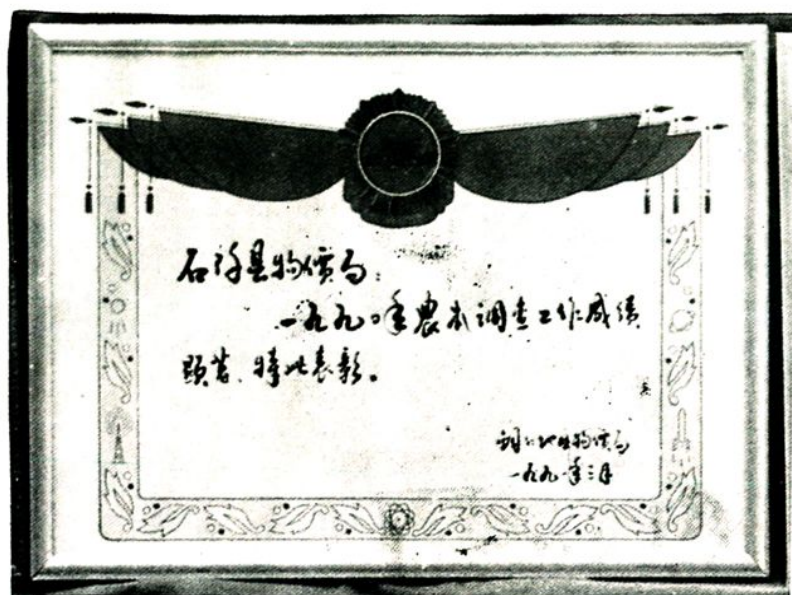 石阡县物價局:
一九九〇年農本调查工作成绩
顯著、特此表彰。
铜仁地区物價局
一九九一年三月